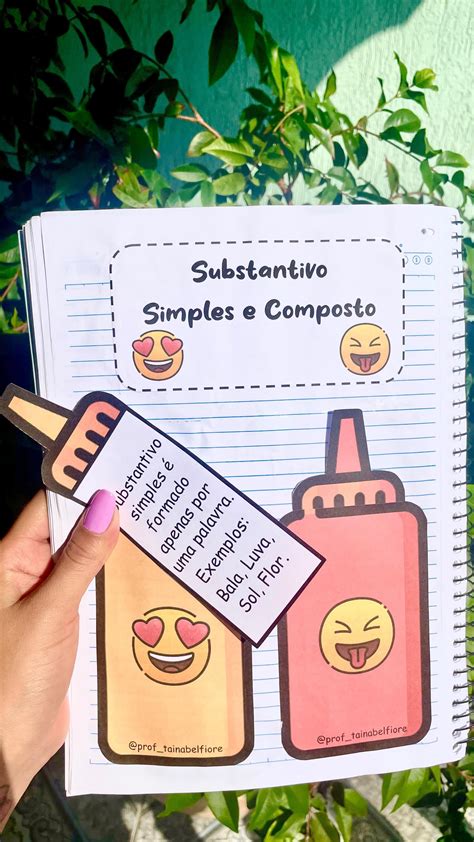 Substantivo
Simples e Composto
Substantivo
simples é
formado
apenas por
uma palavra.
Exemplos:
Bala, Luva,
Sol, Flor.
@prof_tainabelfiore
@prof_tainabelfiore